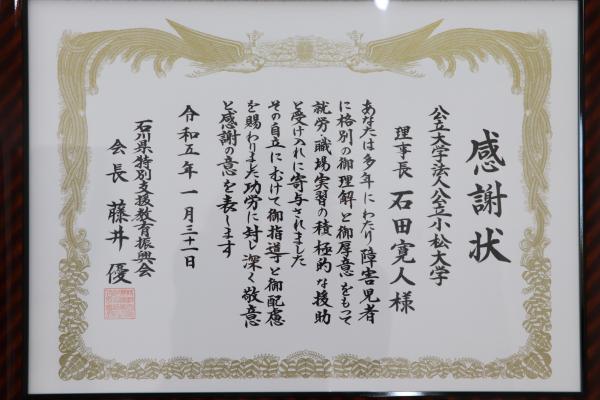 感謝状
公立大学法人公立小松大学
理事長 石田寛人様
あなたは多年にわたり障害児者
に格別の御理解と御厚意をもって
就労・職場実習の積極的な援助
と受け入れに寄与されました
その自立にむけて御指導と御配慮
を賜わりました功労に対し深く敬意
と感謝の意を表します
令和五年一月三十一日
石川県特別支援教育振興会
会長 藤井優